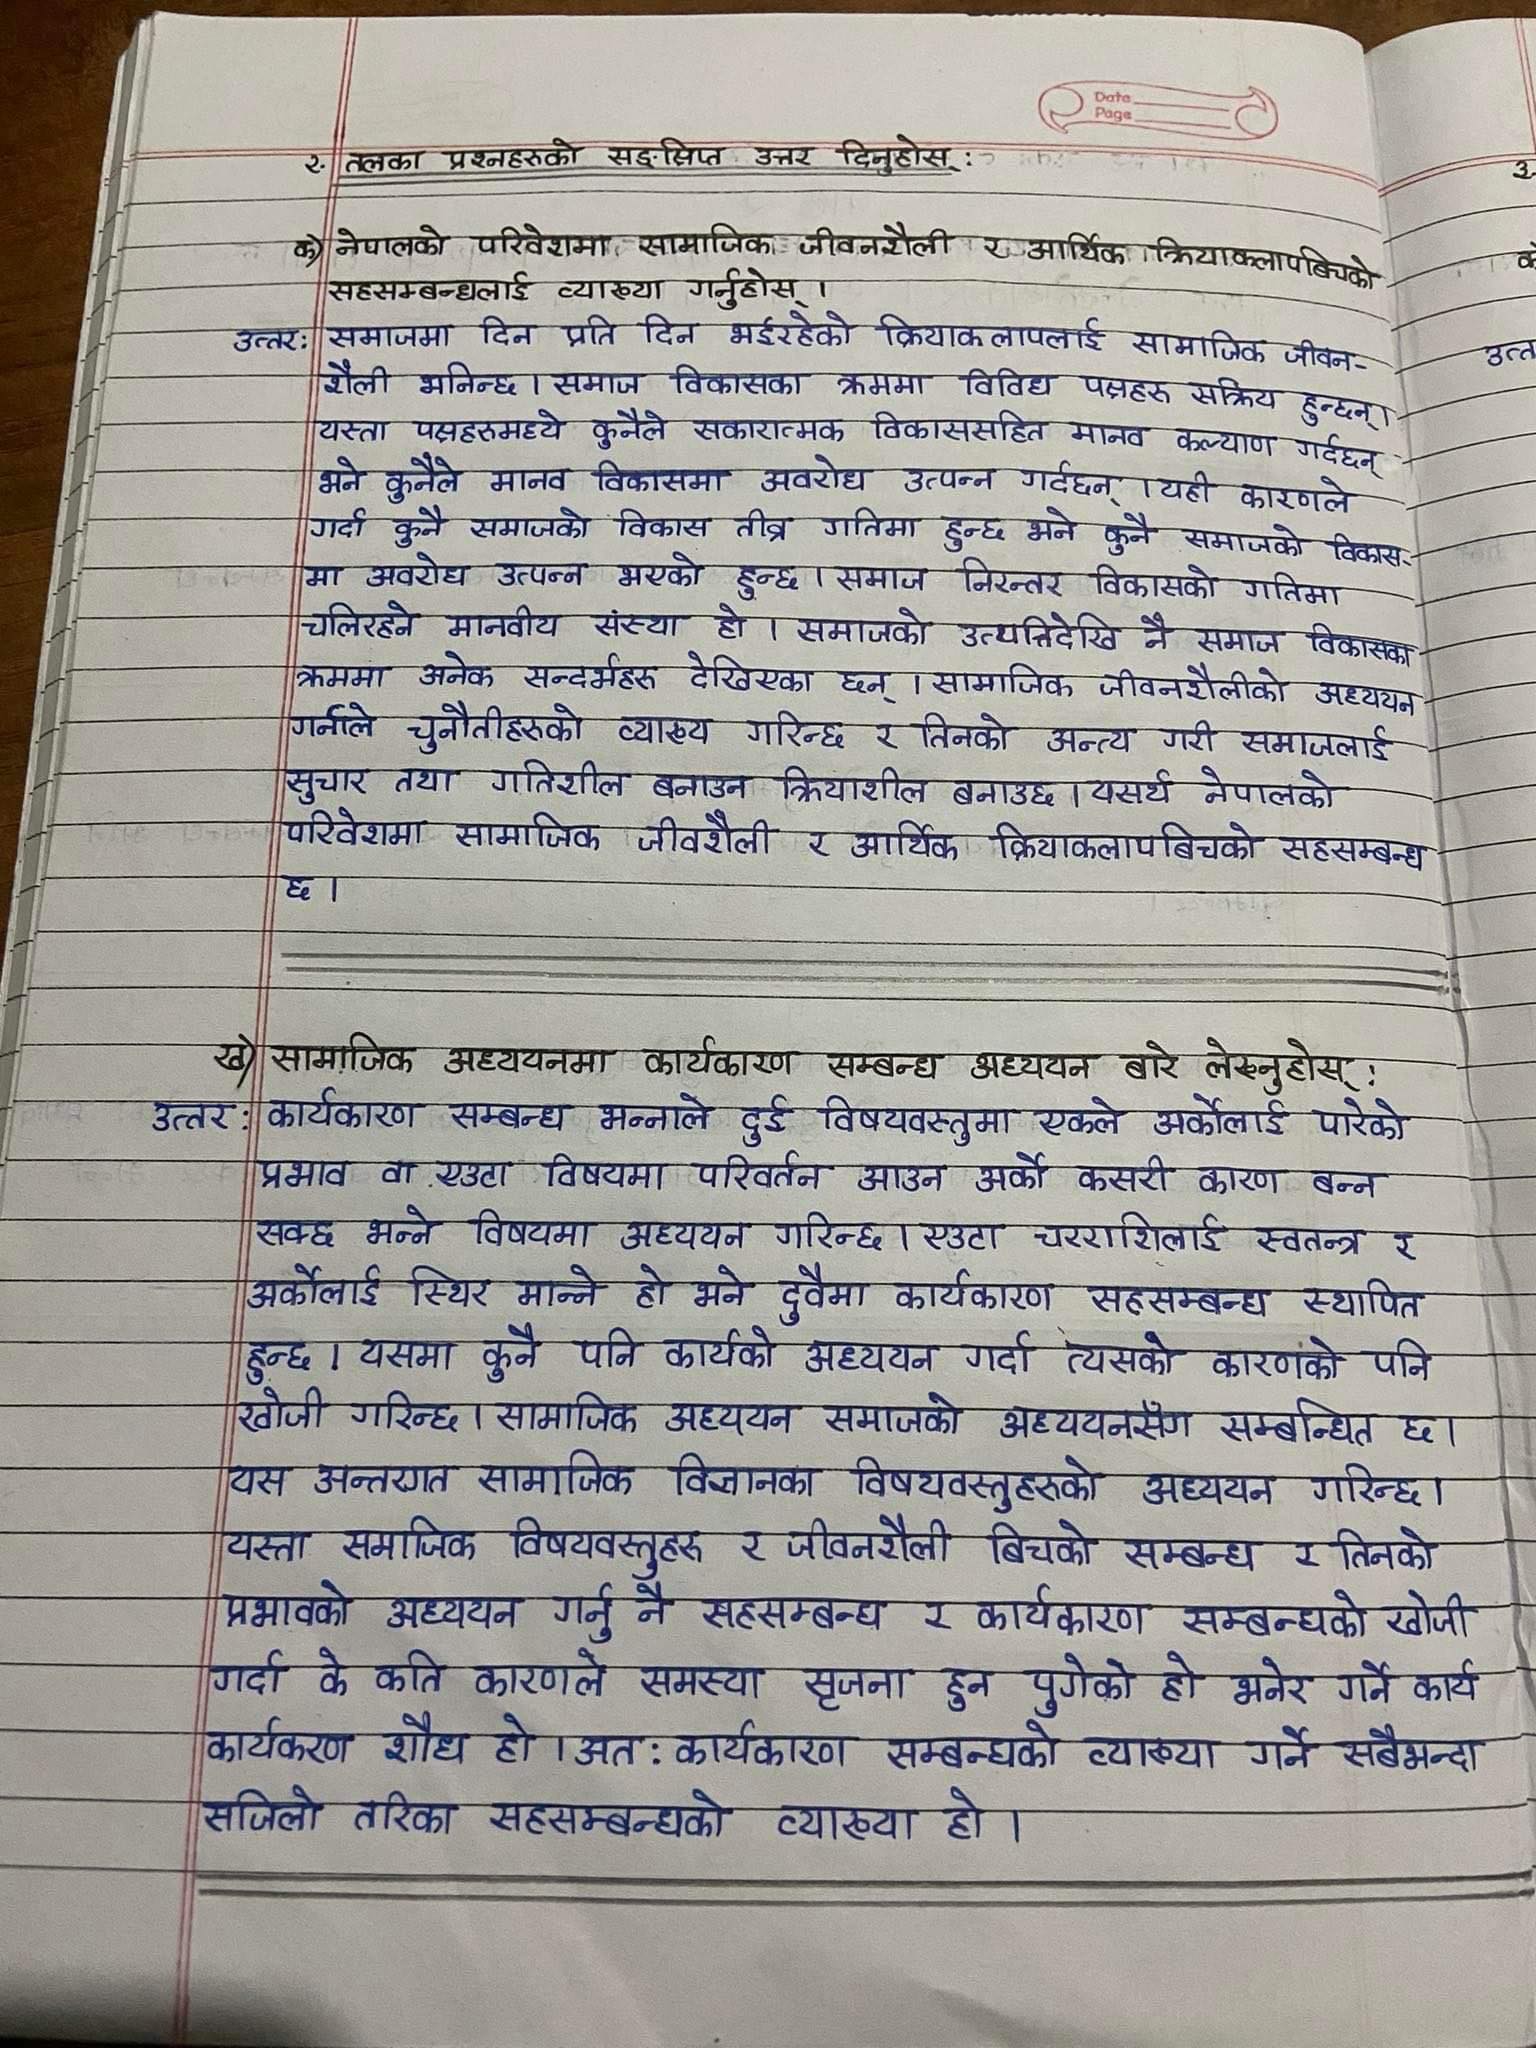 Date
Page
२. तलका प्रश्नहरुको सङ्क्षिप्त उत्तर दिनुहोस् :
क) नेपालको परिवेशमा सामाजिक जीवनशैली र आर्थिक क्रियाकलापबिचको
सहसम्बन्धलाई व्याख्या गर्नुहोस् ।
उत्तर: समाजमा दिन प्रति दिन भईरहेको क्रियाकलापलाई सामाजिक जीवन-
शैली भनिन्छ । समाज विकासका क्रममा विविध पक्षहरु सक्रिय हुन्छन् ।
यस्ता पक्षहरुमध्ये कुनैले सकारात्मक विकाससहित मानव कल्याण गर्दछन्
भने कुनैले मानव विकासमा अवरोध उत्पन्न गर्दछन् । यही कारणले
गर्दा कुनै समाजको विकास तीव्र गतिमा हुन्छ भने कुनै समाजको विकास-
मा अवरोध उत्पन्न भएको हुन्छ । समाज निरन्तर विकासको गतिमा
चलिरहने मानवीय संस्था हो । समाजको उत्पत्तिदेखि नै समाज विकासका
क्रममा अनेक सन्दर्भहरु देखिएका छन् । सामाजिक जीवनशैलीको अध्ययन
गर्नाले चुनौतीहरुको व्याख्य गरिन्छ र तिनको अन्त्य गरी समाजलाई
सुचार तथा गतिशील बनाउन क्रियाशील बनाउछ । यसर्थ नेपालको
परिवेशमा सामाजिक जीवशैली र आर्थिक क्रियाकलापबिचको सहसम्बन्ध
छ ।
ख) सामाजिक अध्ययनमा कार्यकारण सम्बन्ध अध्ययन बारे लेख्नुहोस् :
उत्तर : कार्यकारण सम्बन्ध भन्नाले दुई विषयवस्तुमा एकले अर्कोलाई पारेको
प्रभाव वा एउटा विषयमा परिवर्तन आउन अर्को कसरी कारण बन्न
सक्छ भन्ने विषयमा अध्ययन गरिन्छ । एउटा चरराशिलाई स्वतन्त्र र
अर्कोलाई स्थिर मान्ने हो भने दुवैमा कार्यकारण सहसम्बन्ध स्थापित
हुन्छ । यसमा कुनै पनि कार्यको अध्ययन गर्दा त्यसको कारणको पनि
खोजी गरिन्छ । सामाजिक अध्ययन समाजको अध्ययनसँग सम्बन्धित छ ।
यस अन्तरगत सामाजिक विज्ञानका विषयवस्तुहरुको अध्ययन गरिन्छ ।
यस्ता समाजिक विषयवस्तुहरु र जीवनशैली बिचको सम्बन्ध र तिनको
प्रभावको अध्ययन गर्नु नै सहसम्बन्ध र कार्यकारण सम्बन्धको खोजी
गर्दा के कति कारणले समस्या सृजना हुन पुगेको हो भनेर गर्ने कार्य
कार्यकरण शौध हो । अत : कार्यकारण सम्बन्धको व्याख्या गर्ने सबैभन्दा
सजिलो तरिका सहसम्बन्धको व्याख्या हो ।
३.
उत्त